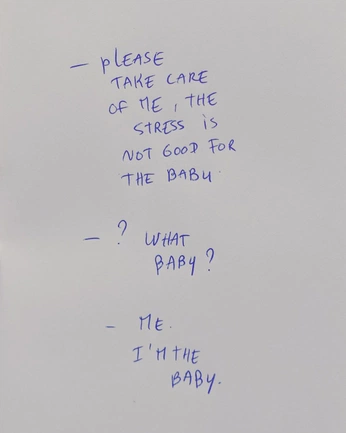 - PLEASE
TAKE CARE
OF ME, THE
STRESS IS
NOT GOOD FOR
THE BABY.
- ? WHAT
BABY?
- ME.
I'M THE
BABY.